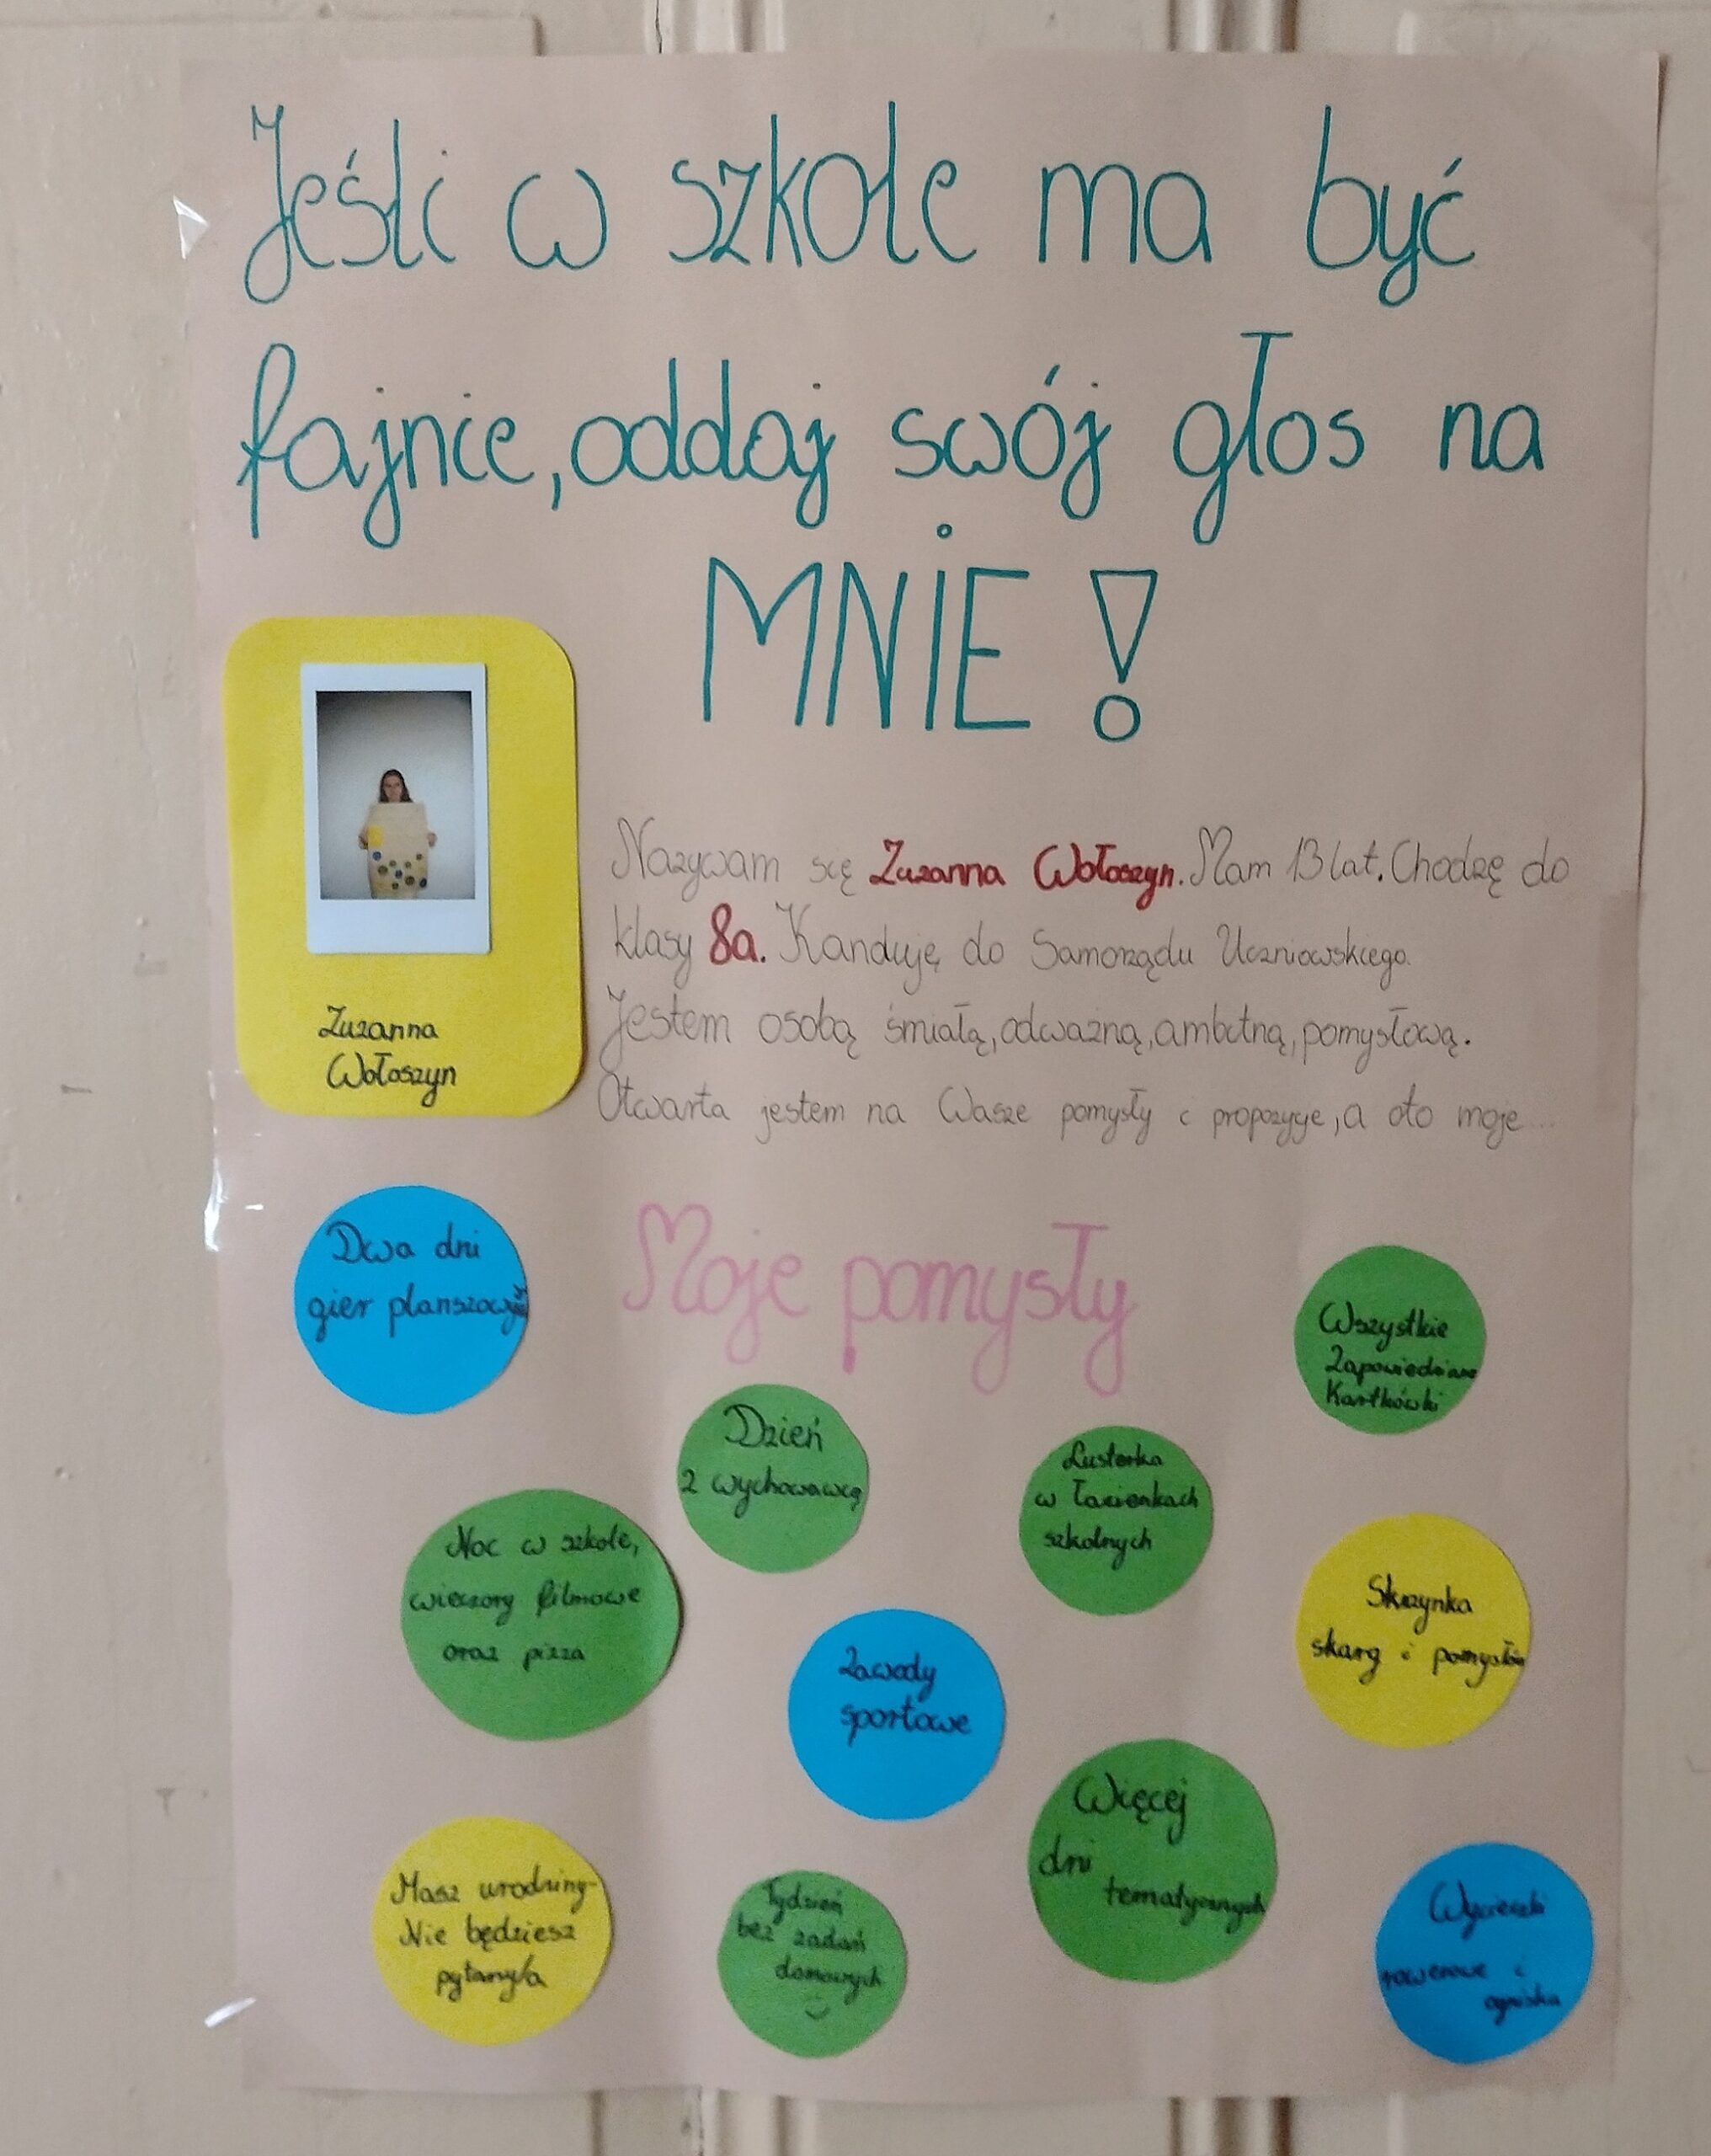 Jeśli w szkole ma być
fajnie, oddaj swój głos na
MNIE!
Zuzanna
Wołoszyn
Nazywam się Zuzanna Wołoszyn. Mam 13 lat. Chodzę do
klasy 8a. Kanduję do Samorządu Uczniowskiego.
Jestem osobą śmiałą, odważną, ambitną, pomysłową.
Otwarta jestem na Wasze pomysły i propozycje, a oto moje...
Moje pomysły
Dwa dni
gier planszowych
Wszystkie
Zapowiedziane
Kartkówki
Dzień
z wychowawcą
Lusterka
w łazienkach
szkolnych
Noc w szkole,
wieczory filmowe
oraz pizza
Skrzynka
skarg i pomysłów
Zawody
sportowe
Więcej
dni
tematycznych
Masz urodziny-
Nie będziesz
pytany/a
Tydzień
bez zadań
domowych
Wycieczki
rowerowe i
ogniska